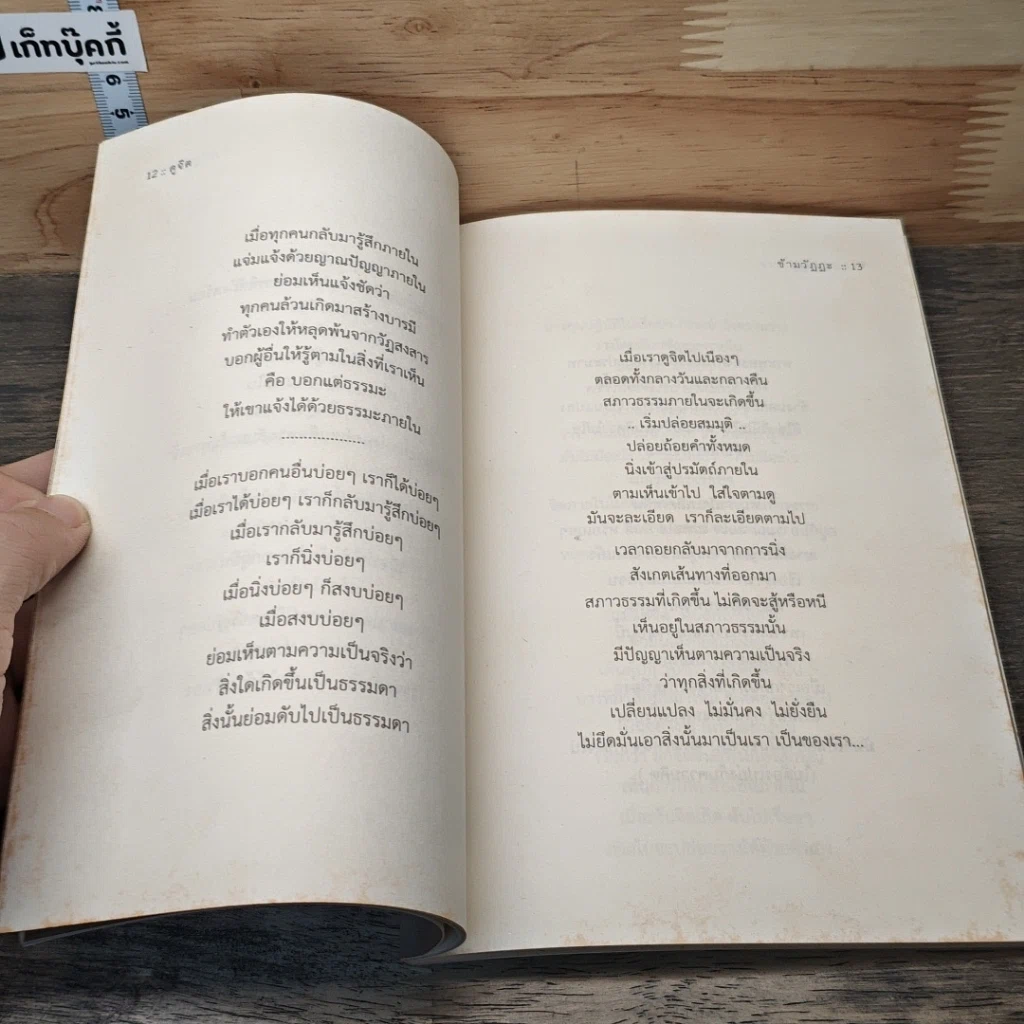 เก็ทบุ๊คกี้
6 5
12 :: ดูจิต
เมื่อทุกคนกลับมารู้สึกภายใน
แจ่มแจ้งด้วยญาณปัญญาภายใน
ย่อมเห็นแจ้งชัดว่า
ทุกคนล้วนเกิดมาสร้างบารมี
ทำตัวเองให้หลุดพ้นจากวัฏสงสาร
บอกผู้อื่นให้รู้ตามในสิ่งที่เราเห็น
คือ บอกแต่ธรรมะ
ให้เขาแจ้งได้ด้วยธรรมะภายใน
เมื่อเราบอกคนอื่นบ่อยๆ เราก็ได้บ่อยๆ
เมื่อเราได้บ่อยๆ เราก็กลับมารู้สึกบ่อยๆ
เมื่อเรากลับมารู้สึกบ่อยๆ
เราก็นิ่งบ่อยๆ
เมื่อนิ่งบ่อยๆ ก็สงบบ่อยๆ
เมื่อสงบบ่อยๆ
ย่อมเห็นตามความเป็นจริงว่า
สิ่งใดเกิดขึ้นเป็นธรรมดา
สิ่งนั้นย่อมดับไปเป็นธรรมดา
ข้ามวัฏฏะ :: 13
เมื่อเราดูจิตไปเนืองๆ
ตลอดทั้งกลางวันและกลางคืน
สภาวธรรมภายในจะเกิดขึ้น
.. เริ่มปล่อยสมมุติ ..
ปล่อยถ้อยคำทั้งหมด
นิ่งเข้าสู่ปรมัตถ์ภายใน
ตามเห็นเข้าไป ใส่ใจตามดู
มันจะละเอียด เราก็ละเอียดตามไป
เวลาถอยกลับมาจากการนิ่ง
สังเกตเส้นทางที่ออกมา
สภาวธรรมที่เกิดขึ้น ไม่คิดจะสู้หรือหนี
เห็นอยู่ในสภาวธรรมนั้น
มีปัญญาเห็นตามความเป็นจริง
ว่าทุกสิ่งที่เกิดขึ้น
เปลี่ยนแปลง ไม่มั่นคง ไม่ยั่งยืน
ไม่ยึดมั่นเอาสิ่งนั้นมาเป็นเรา เป็นของเรา...